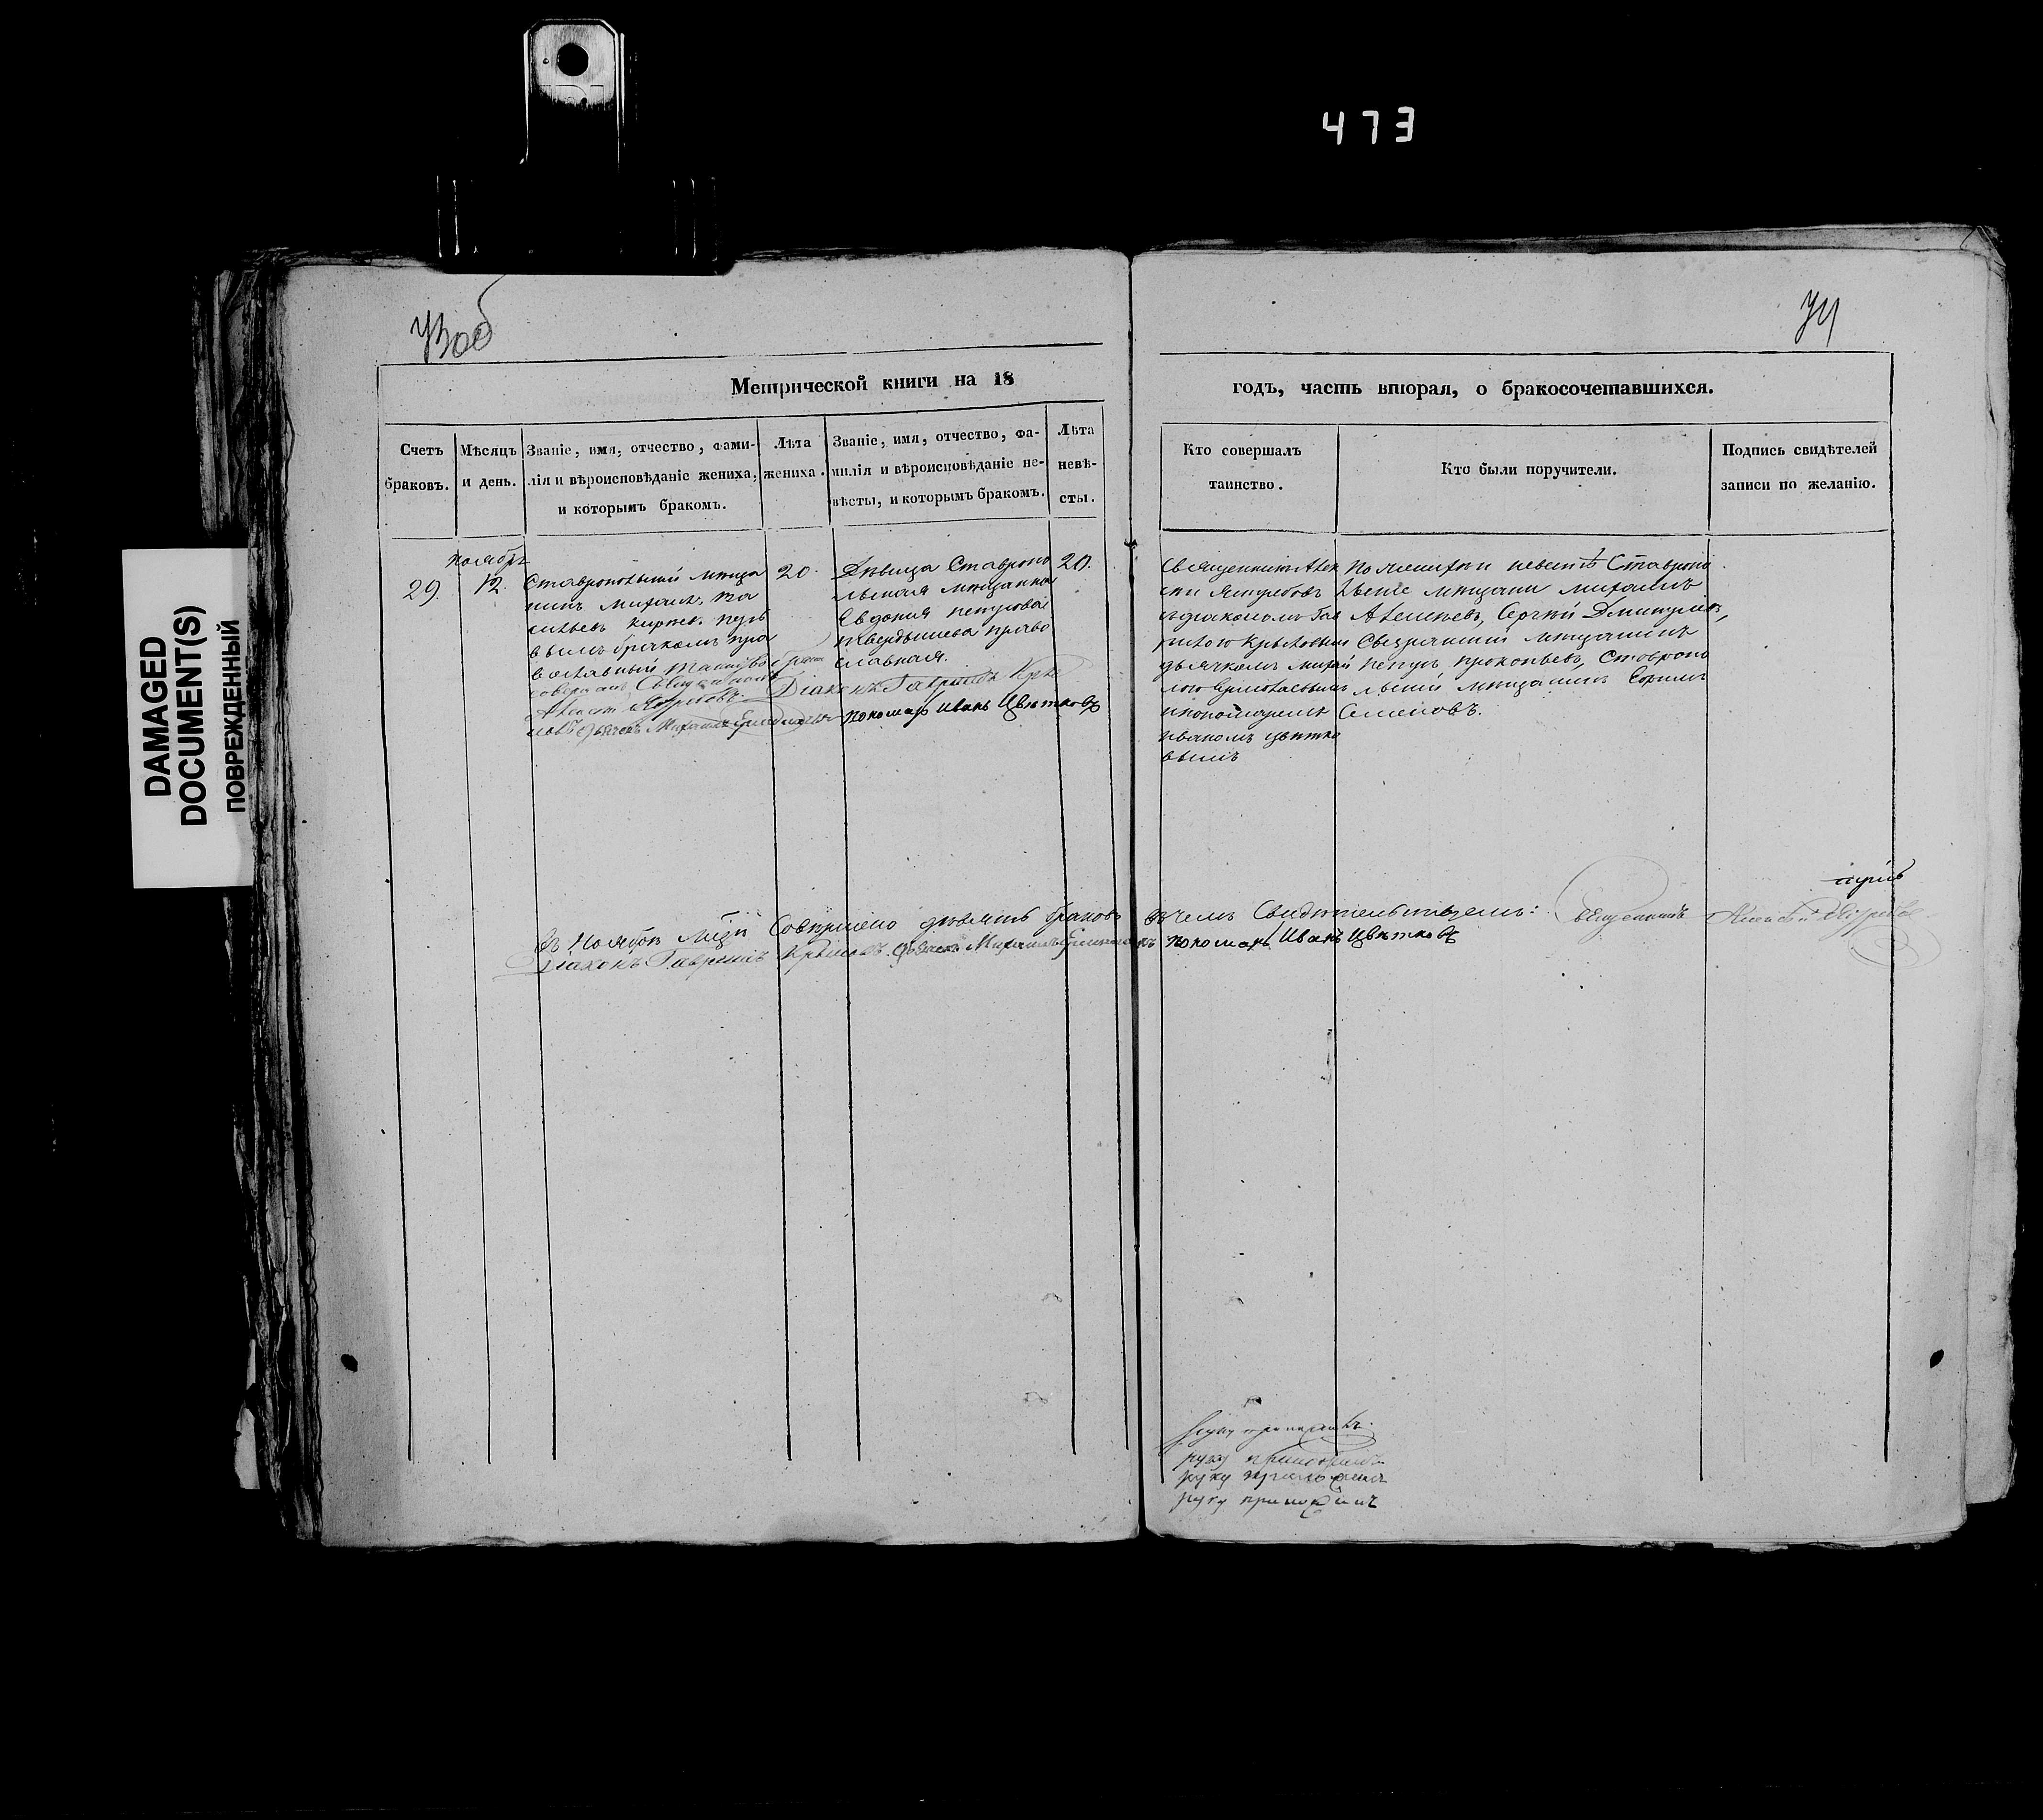 473
73об
74
DAMAGED
DOCUMENT(S)
ПОВРЕЖДЕННЫЙ
Метрической книги на 18
годъ, часть вторая, о бракосочетавшихся.
Счетъ браковъ.
Мѣсяцъ и день.
Званіе, имя, отчество, фами-
лія и вѣроисповѣданіе жениха,
и которымъ бракомъ.
Лѣта
жениха.
Званіе, имя, отчество, фа-
милія и вѣроисповѣданіе не-
вѣсты, и которымъ бракомъ.
Лѣта
невѣ-
сты.
Кто совершалъ
таинство.
Кто были поручители.
Подпись свидѣтелей
записи по желанію.
29.
ноябрь
12.
Ставропольский мѣща
нинъ михаилъ ва
сильевъ перъ
вымъ бракомъ пра
вославный таинство брака
совершалъ Священникъ
Алексѣй Ястребовъ.
Діаконъ Гаврiилъ Кры
ловъ дьячекъ Михаилъ
пономарь Иванъ Цвѣтковъ
20.
Дѣвица Ставропо
льская мѣщанка
Евдокия петрова
твердышева право
славная.
20.
Священникъ Алек
сѣй Ястребовъ
съ диакономъ Гав
риломъ Крыловымъ
дьячкомъ михай
ломъ
и пономаремъ
иваномъ цвѣтко
вымъ
По женихѣ и невестѣ Ставропо
льские мѣщани михаилъ
Алексѣевъ, Сергѣй Дмитриевъ,
Сызранский мѣщанинъ
петръ прокопьевъ, Ставропо
льский мѣщанинъ
Семеновъ.
Въ Ноябрѣ мцѣ совершено девять браковъ въ чемъ Свидѣтельствуемъ: Священникъ Алексѣй Ястребовъ
Діаконъ Гавріилъ Крыловъ дьячекъ Михаилъ пономарь Иванъ Цвѣтковъ
руку приложилъ
руку приложилъ
руку приложилъ
руку приложилъ